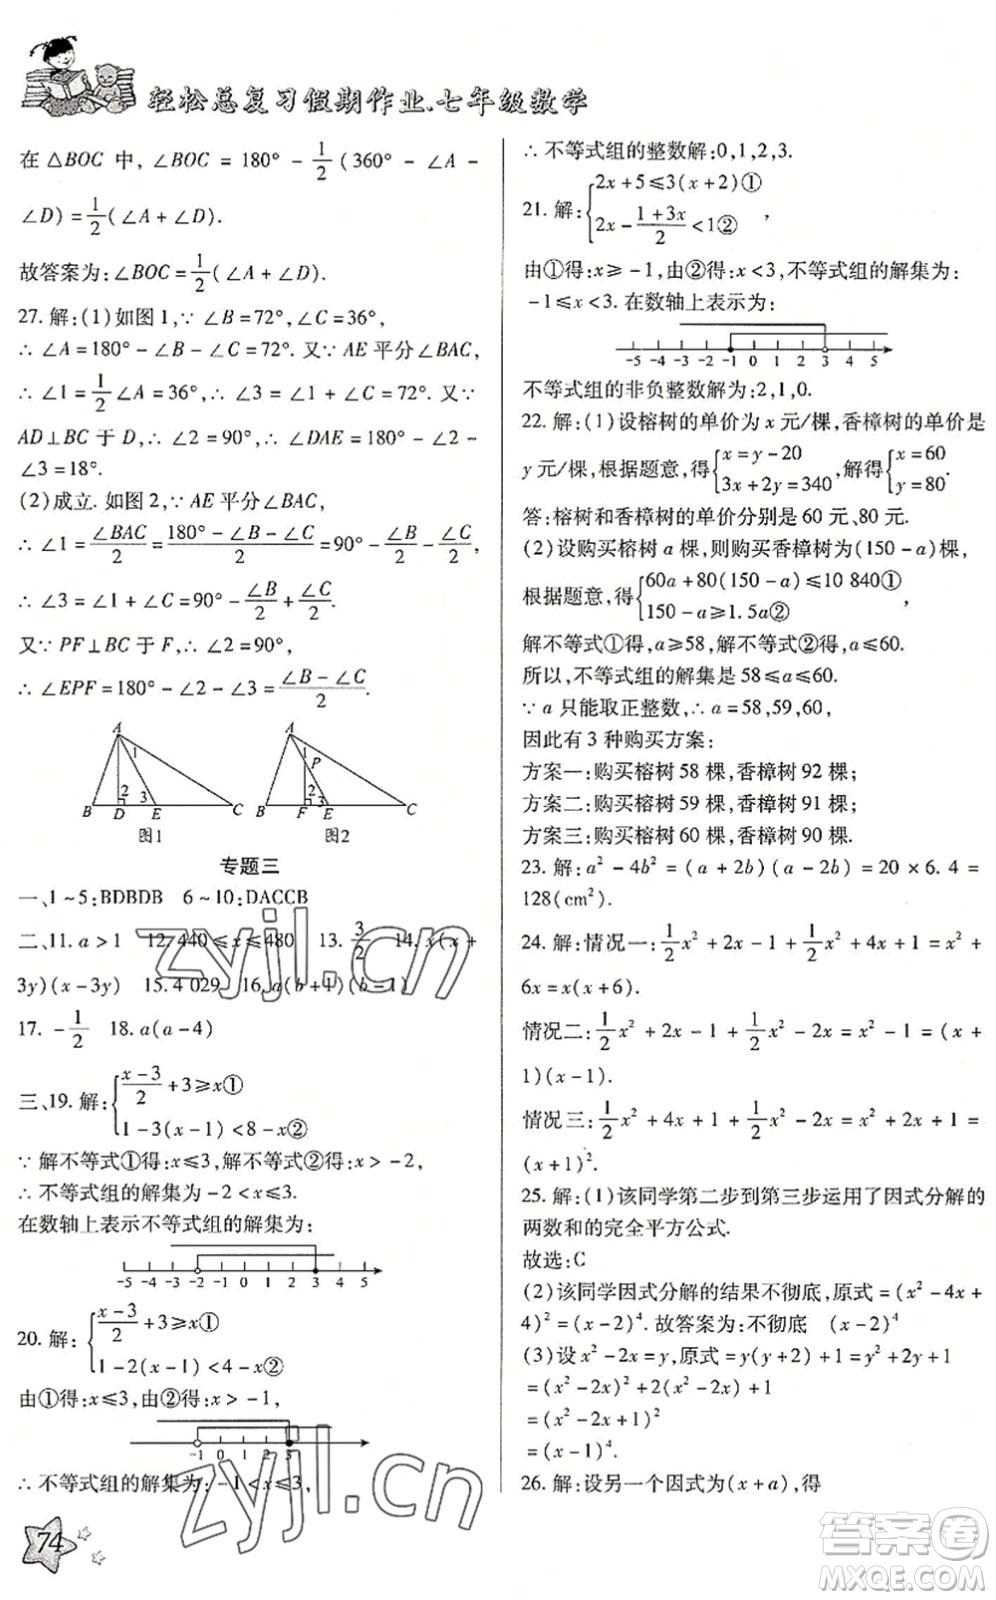 轻松总复习假期作业.七年级数学
在 △BOC 中, ∠BOC = 180° - 1/2 (360° - ∠A -
∠D) = 1/2 (∠A + ∠D).
故答案为: ∠BOC = 1/2 (∠A + ∠D).
27. 解:(1)如图 1,∵ ∠B = 72°,∠C = 36°,
∴ ∠A = 180° - ∠B - ∠C = 72°. 又∵ AE 平分∠BAC,
∴ ∠1 = 1/2 ∠A = 36°,∴ ∠3 = ∠1 + ∠C = 72°. 又∵
AD⊥BC 于 D,∴ ∠2 = 90°,∴ ∠DAE = 180° - ∠2 -
∠3 = 18°.
(2)成立. 如图 2,∵ AE 平分∠BAC,
∴ ∠1 = ∠BAC/2 = (180° - ∠B - ∠C)/2 = 90° - ∠B/2 - ∠C/2,
∴ ∠3 = ∠1 + ∠C = 90° - ∠B/2 + ∠C/2.
又∵ PF⊥BC 于 F,∴ ∠2 = 90°,
∴ ∠EPF = 180° - ∠2 - ∠3 = (∠B - ∠C)/2.
A 1 2 3 B D E C
图1
A 1 P 2 3 B F E C
图2
专题三
一、1～5:BDBDB 6～10:DACCB
二、11. a > 1 12. 440 ≤ x ≤ 480 13. 3/2 14. x(x +
3y)(x - 3y) 15. 4 029 16. a(b + 1)(b - 1)
17. -1/2 18. a(a - 4)
三、19. 解: { (x - 3)/2 + 3 ≥ x①
1 - 3(x - 1) < 8 - x②
∵ 解不等式①得:x ≤ 3,解不等式②得:x > -2,
∴ 不等式组的解集为: -2 < x ≤ 3.
在数轴上表示不等式组的解集为:
-5 -4 -3 -2 -1 0 1 2 3 4 5
20. 解: { (x - 3)/2 + 3 ≥ x①
1 - 2(x - 1) < 4 - x②
由①得:x ≤ 3,由②得:x > -1,
-1 0 1 2 3
∴ 不等式组的解集为: -1 < x ≤ 3,
74
∴ 不等式组的整数解:0,1,2,3.
21. 解: { 2x + 5 ≤ 3(x + 2)①
2x - (1 + 3x)/2 < 1② ,
由①得:x ≥ -1,由②得:x < 3,不等式组的解集为:
-1 ≤ x < 3. 在数轴上表示为:
-5 -4 -3 -2 -1 0 1 2 3 4 5
不等式组的非负整数解为:2,1,0.
22. 解:(1)设榕树的单价为 x 元/棵,香樟树的单价是
y 元/棵,根据题意,得 { x = y - 20
3x + 2y = 340 ,解得 { x = 60
y = 80 .
答:榕树和香樟树的单价分别是 60 元、80 元.
(2)设购买榕树 a 棵,则购买香樟树为(150 - a)棵,
根据题意,得 { 60a + 80(150 - a) ≤ 10 840①
150 - a ≥ 1. 5a② ,
解不等式①得,a ≥ 58,解不等式②得,a ≤ 60.
所以,不等式组的解集是 58 ≤ a ≤ 60.
∵ a 只能取正整数,∴ a = 58,59,60,
因此有 3 种购买方案:
方案一:购买榕树 58 棵,香樟树 92 棵;
方案二:购买榕树 59 棵,香樟树 91 棵;
方案三:购买榕树 60 棵,香樟树 90 棵.
23. 解:a² - 4b² = (a + 2b)(a - 2b) = 20 × 6. 4 =
128(cm²).
24. 解:情况一: 1/2 x² + 2x - 1 + 1/2 x² + 4x + 1 = x² +
6x = x(x + 6).
情况二: 1/2 x² + 2x - 1 + 1/2 x² - 2x = x² - 1 = (x +
1)(x - 1).
情况三: 1/2 x² + 4x + 1 + 1/2 x² - 2x = x² + 2x + 1 =
(x + 1)².
25. 解:(1)该同学第二步到第三步运用了因式分解的
两数和的完全平方公式.
故选:C
(2)该同学因式分解的结果不彻底,原式 = (x² - 4x +
4)² = (x - 2)⁴. 故答案为:不彻底 (x - 2)⁴
(3)设 x² - 2x = y,原式 = y(y + 2) + 1 = y² + 2y + 1
= (x² - 2x)² + 2(x² - 2x) + 1
= (x² - 2x + 1)²
= (x - 1)⁴.
26. 解:设另一个因式为(x + a),得
zyjl.cn
zyjl.cn
答案圈
MXQE.COM